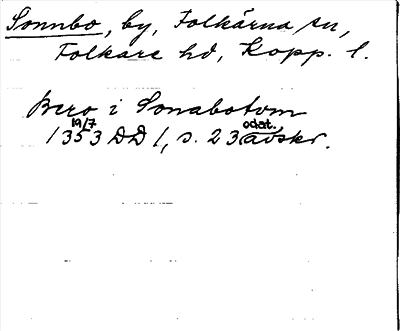 Sonnbo, by, Folkärna sn,
Folkare hd, Kopp. l.
Bero i Sonabotvm
1353 19/7 DD 1, s. 23 odat. avskr.